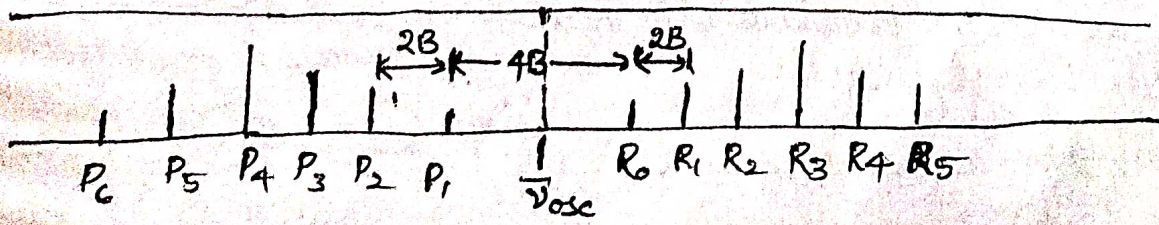 2B 4B 2B
P₆ P₅ P₄ P₃ P₂ P₁ ν̅osc R₀ R₁ R₂ R₃ R₄ R₅